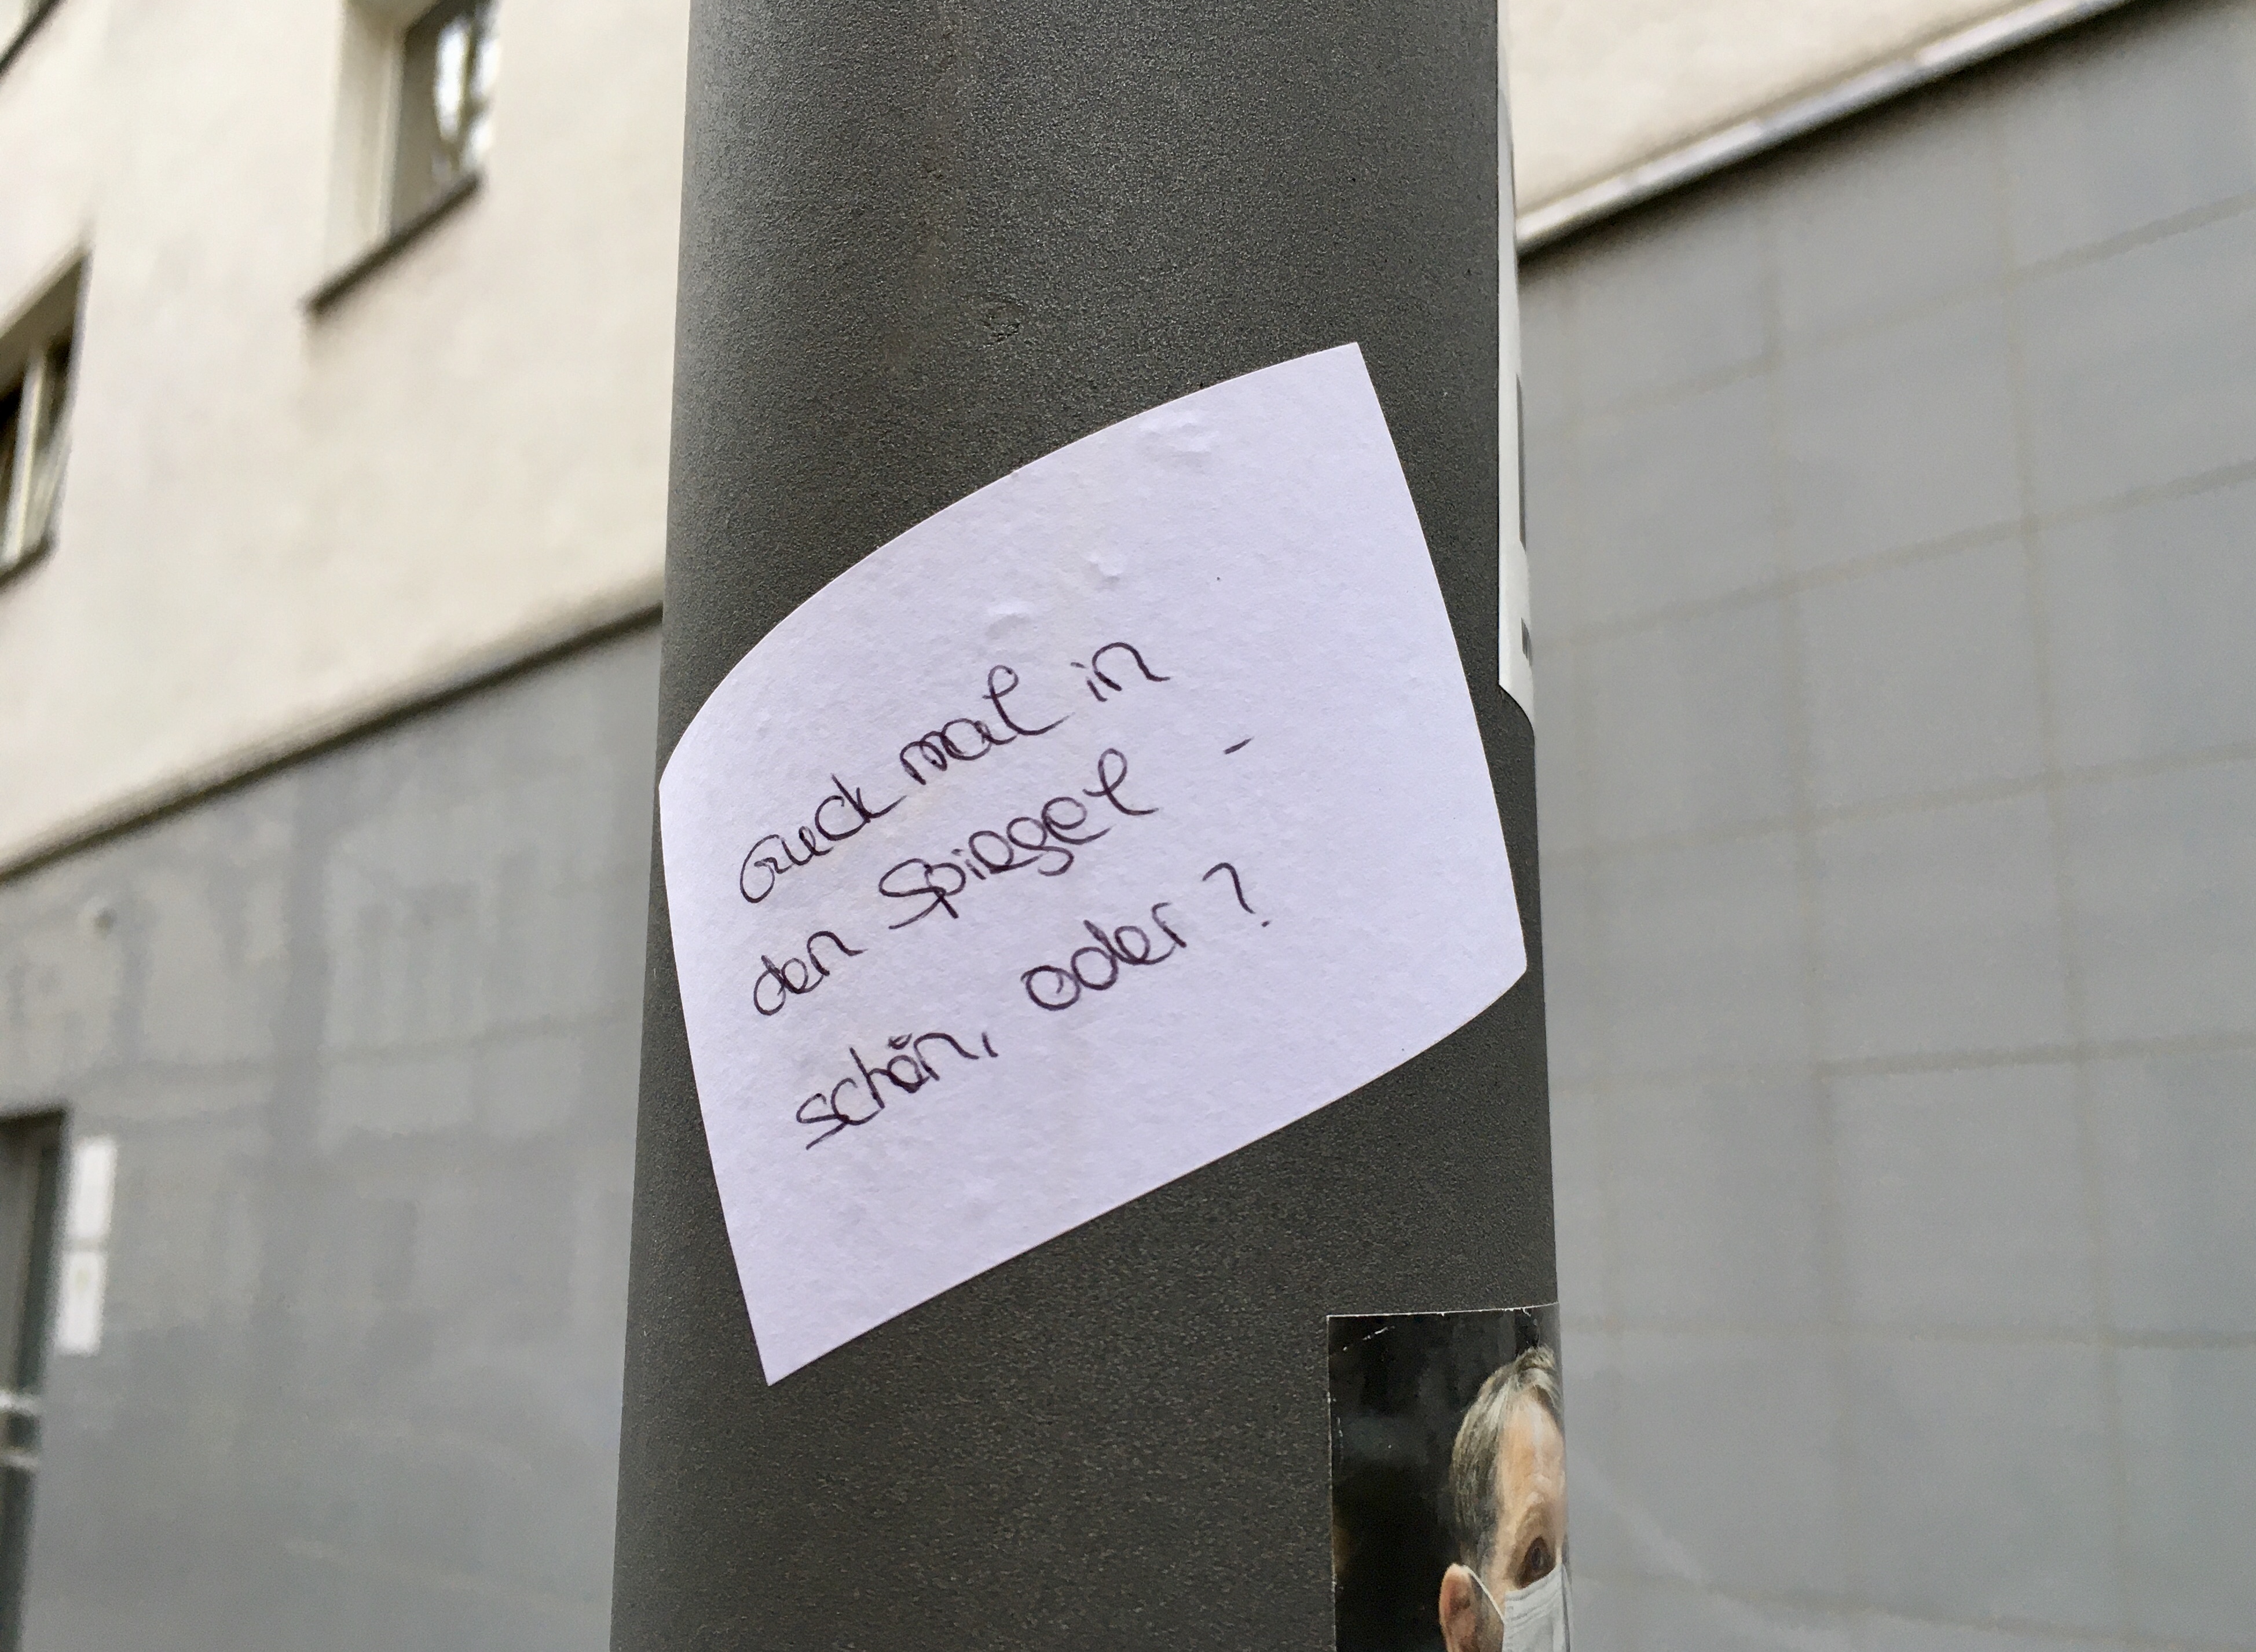 Guck mal in
den Spiegel -
schön, oder?